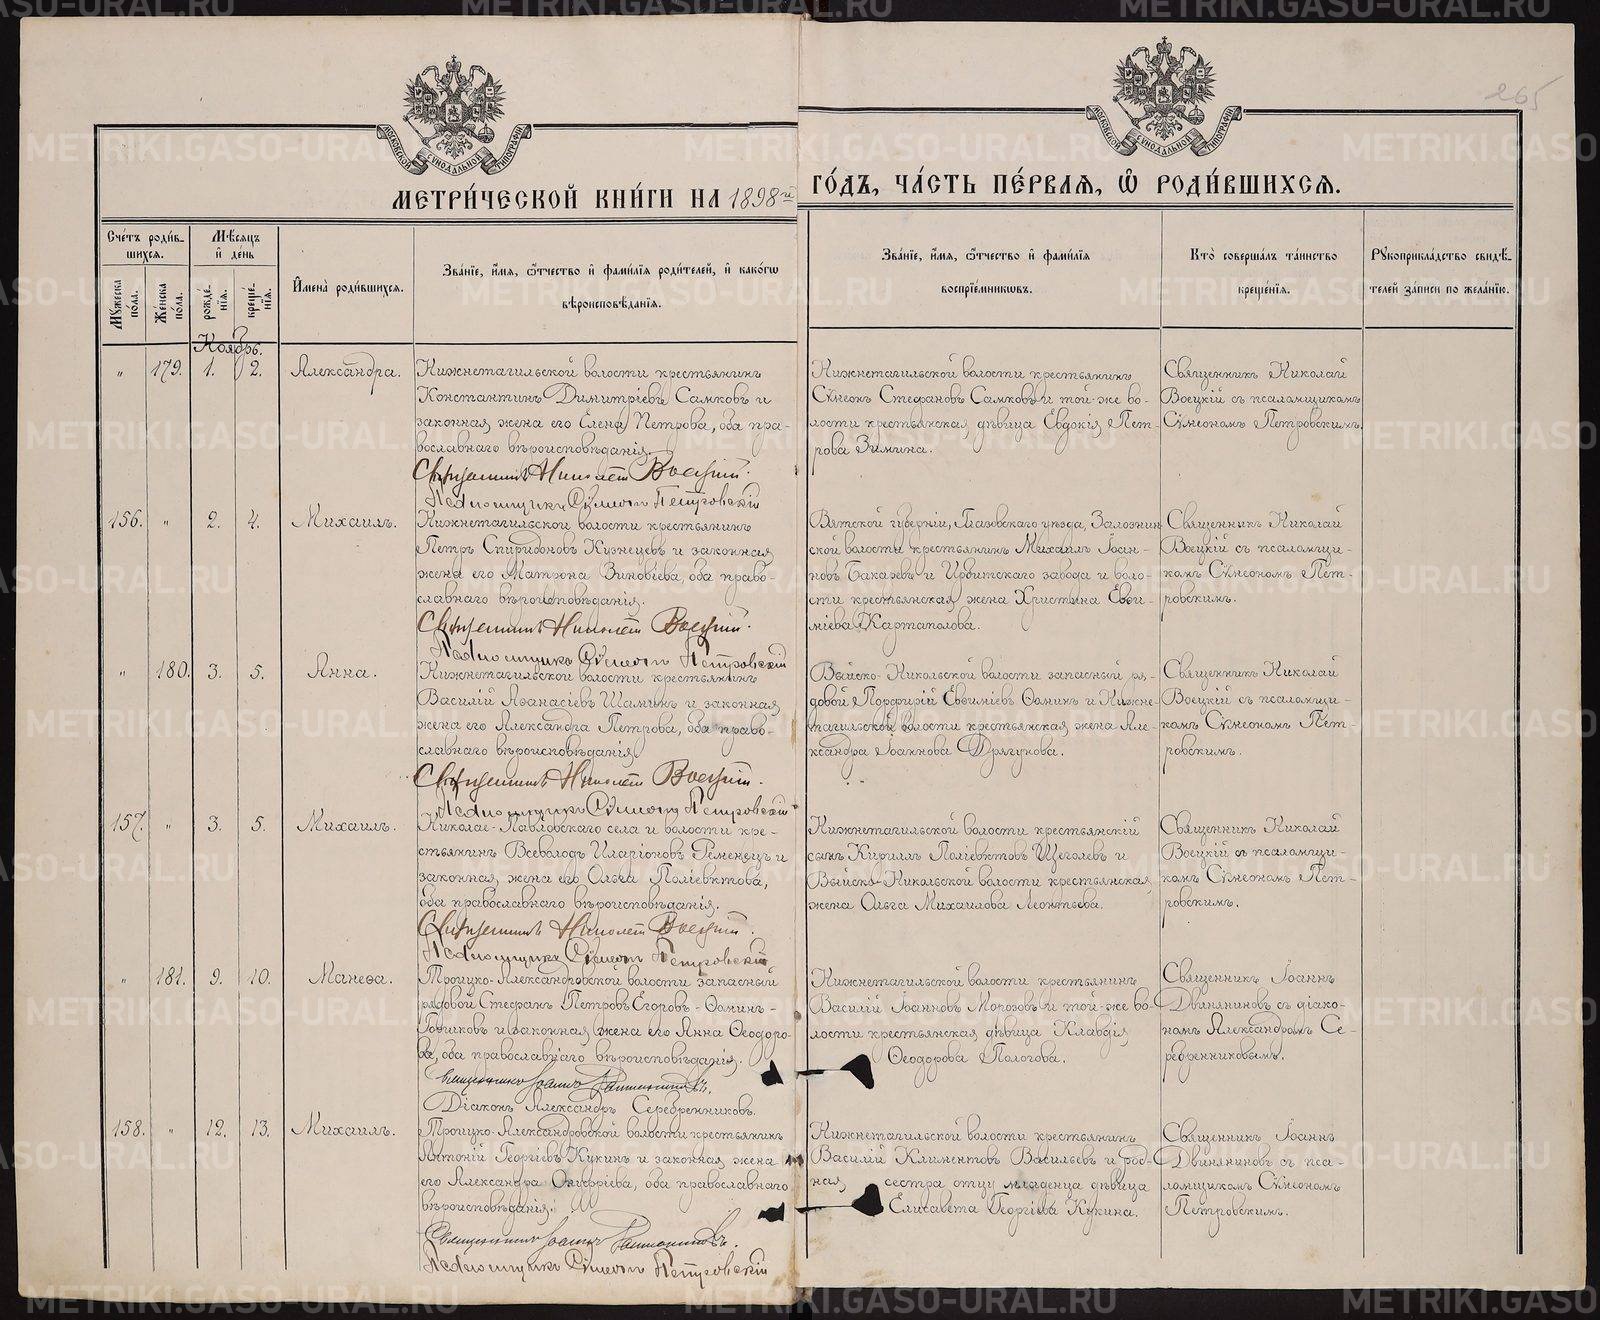 265
МОСКОВСКОЙ СѴНОДАЛЬНОЙ ТИПОГРАФІИ
МОСКОВСКОЙ СѴНОДАЛЬНОЙ ТИПОГРАФІИ
МЕТРИ́ЧЕСКОЙ КНИ́ГИ НА 1898й ГО́ДЪ, ЧА́СТЬ ПЕ́РВАЯ, Ѽ РОДИ́ВШИХСЯ.
Сче́тъ роди́в-
шихся.
Мꙋ́жеска по́ла.
Же́нска по́ла.
Мѣ́сяцъ
и҆ де́нь
рожде́нїя.
креще́нїя.
И҆мена̀ роди́вшихся.
Зва́нїе, и҆́мя, ѻ҆́тчество и҆ фами́лїя роди́телей, и҆ како́гѡ
вѣроисповѣ́данїя.
Зва́нїе, и҆́мя, ѻ҆́тчество и҆ фами́лїя
воспрїе́мникѡвъ.
Кто̀ соверша́лъ та́инство
креще́нїя.
Рꙋкоприкла́дство свидѣ́-
телей за́писи по жела́нїю.
Ноябрь.
" 179. 1. 2. Александра.
Нижнетагильской волости крестьянинъ
Константинъ Димитріевъ Самковъ и
законная жена его Елена Петрова, оба пра-
вославнаго вѣроисповѣданія.
Священникъ Николай Воецкій.
Псаломщикъ Сѵмеонъ Петровскій
Нижнетагильской волости крестьянинъ
Сѵмеонъ Стефановъ Самковъ и той-же во-
лости крестьянская дѣвица Евдокія Пет-
рова Зимина.
Священникъ Николай
Воецкій съ псаломщикомъ
Сѵмеономъ Петровскимъ.
156. " 2. 4. Михаилъ.
Нижнетагильской волости крестьянинъ
Петръ Спиридоновъ Кузнецевъ и законная
жена его Матрона Зиновіева, оба право-
славнаго вѣроисповѣданія.
Священникъ Николай Воецкій.
Псаломщикъ Сѵмеонъ Петровскій
Вятской губерніи, Глазовскаго уѣзда,
ской волости крестьянинъ Михаилъ Іоан-
новъ Бакаревъ и Ирбитскаго завода и воло-
сти крестьянская жена Христина Евѳи-
міева Картаполова.
Священникъ Николай
Воецкій съ псаломщи-
комъ Сѵмеономъ Пет-
ровскимъ.
" 180. 3. 5. Анна.
Нижнетагильской волости крестьянинъ
Василій Аѳанасіевъ Шаминъ и законная
жена его Александра Петрова, оба право-
славнаго вѣроисповѣданія.
Священникъ Николай Воецкій.
Псаломщикъ Сѵмеонъ Петровскій
Выйско-Никольской волости запасный ря-
довой Порфирій Евѳиміевъ Ѳоминъ и Нижне-
тагильской волости крестьянская жена Але-
ксандра Іоаннова Дрягунова.
Священникъ Николай
Воецкій съ псаломщи-
комъ Сѵмеономъ Пет-
ровскимъ.
157. " 3. 5. Михаилъ.
Николае-Павловскаго села и волости кре-
стьянинъ Всеволодъ Иларіоновъ Ременецъ и
законная жена его Ольга Поліевктова,
оба православнаго вѣроисповѣданія.
Священникъ Николай Воецкій.
Псаломщикъ Сѵмеонъ Петровскій
Нижнетагильской волости крестьянскій
сынъ Кириллъ Поліевктовъ Щеголевъ и
Выйско-Никольской волости крестьянская
жена Ольга Михаилова Леонтьева.
Священникъ Николай
Воецкій съ псаломщи-
комъ Сѵмеономъ Пет-
ровскимъ.
" 181. 9. 10. Манеѳа.
Троицко-Александровской волости запасный
рядовой Стефанъ Петровъ Егоровъ-Ѳоминъ-
и законная жена его Анна Ѳеодоро-
ва, оба православнаго вѣроисповѣданія.
Священникъ Іоаннъ
Діаконъ Александръ Серебренниковъ.
Нижнетагильской волости крестьянинъ
Василій Іоанновъ Морозовъ и той-же во-
лости крестьянская дѣвица Клавдія
Ѳеодорова Пологова.
Священникъ Іоаннъ
Двиняниновъ съ діако-
номъ Александромъ Се-
ребренниковымъ.
158. " 12. 13. Михаилъ.
Троицко-Александровской волости крестьянинъ
Антоній Георгіевъ Кукинъ и законная жена
его Александра Онуфріева, оба православнаго
вѣроисповѣданія.
Священникъ Іоаннъ
Псаломщикъ Сѵмеонъ Петровскій
Нижнетагильской волости крестьянинъ
Василій Климентовъ Васильевъ и род-
ная сестра отцу младенца дѣвица
Елисавета Георгіева Кукина.
Священникъ Іоаннъ
Двиняниновъ съ пса-
ломщикомъ Сѵмеономъ
Петровскимъ.
METRIKI.GASO-URAL.RU